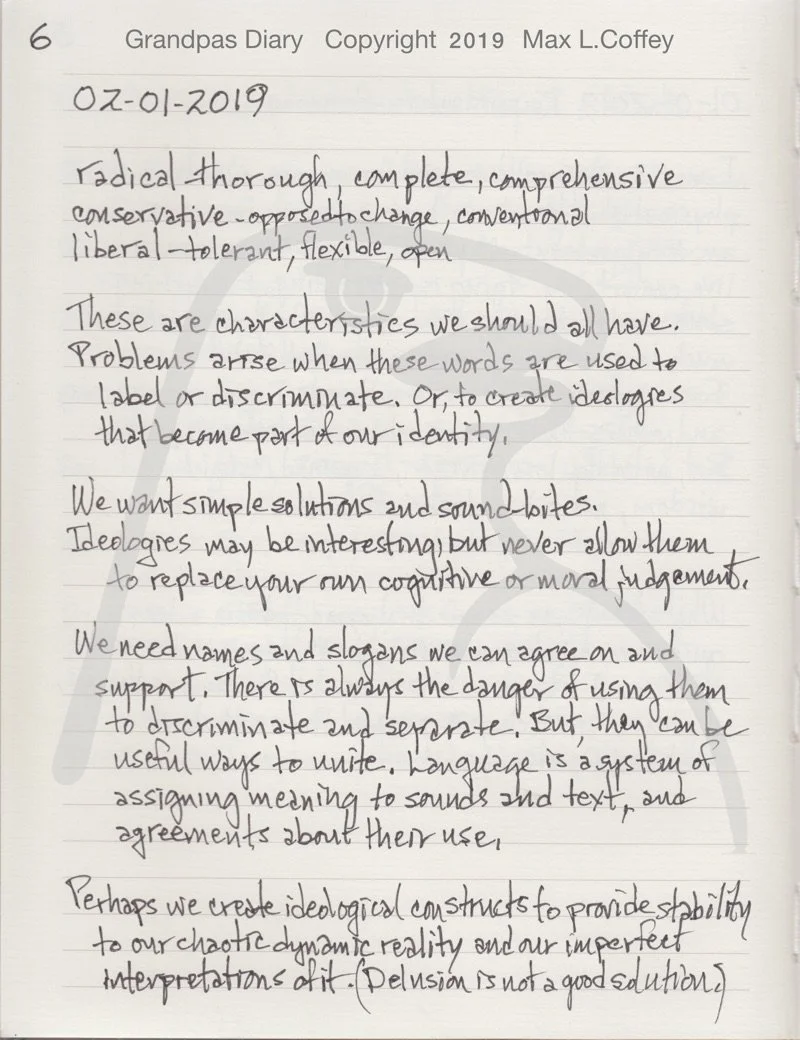 6
Grandpas Diary Copyright 2019 Max L.Coffey
02-01-2019
radical-thorough, complete, comprehensive
conservative-opposed to change, conventional
liberal-tolerant, flexible, open
These are characteristics we should all have.
Problems arise when these words are used to
label or discriminate. Or, to create ideologies
that become part of our identity.
We want simple solutions and sound-bites.
Ideologies may be interesting, but never allow them
to replace your own cognitive or moral judgement.
We need names and slogans we can agree on and
support. There is always the danger of using them
to discriminate and separate. But, they can be
useful ways to unite. Language is a system of
assigning meaning to sounds and text, and
agreements about their use.
Perhaps we create ideological constructs to provide stability
to our chaotic dynamic reality and our imperfect
interpretations of it. (Delusion is not a good solution.)